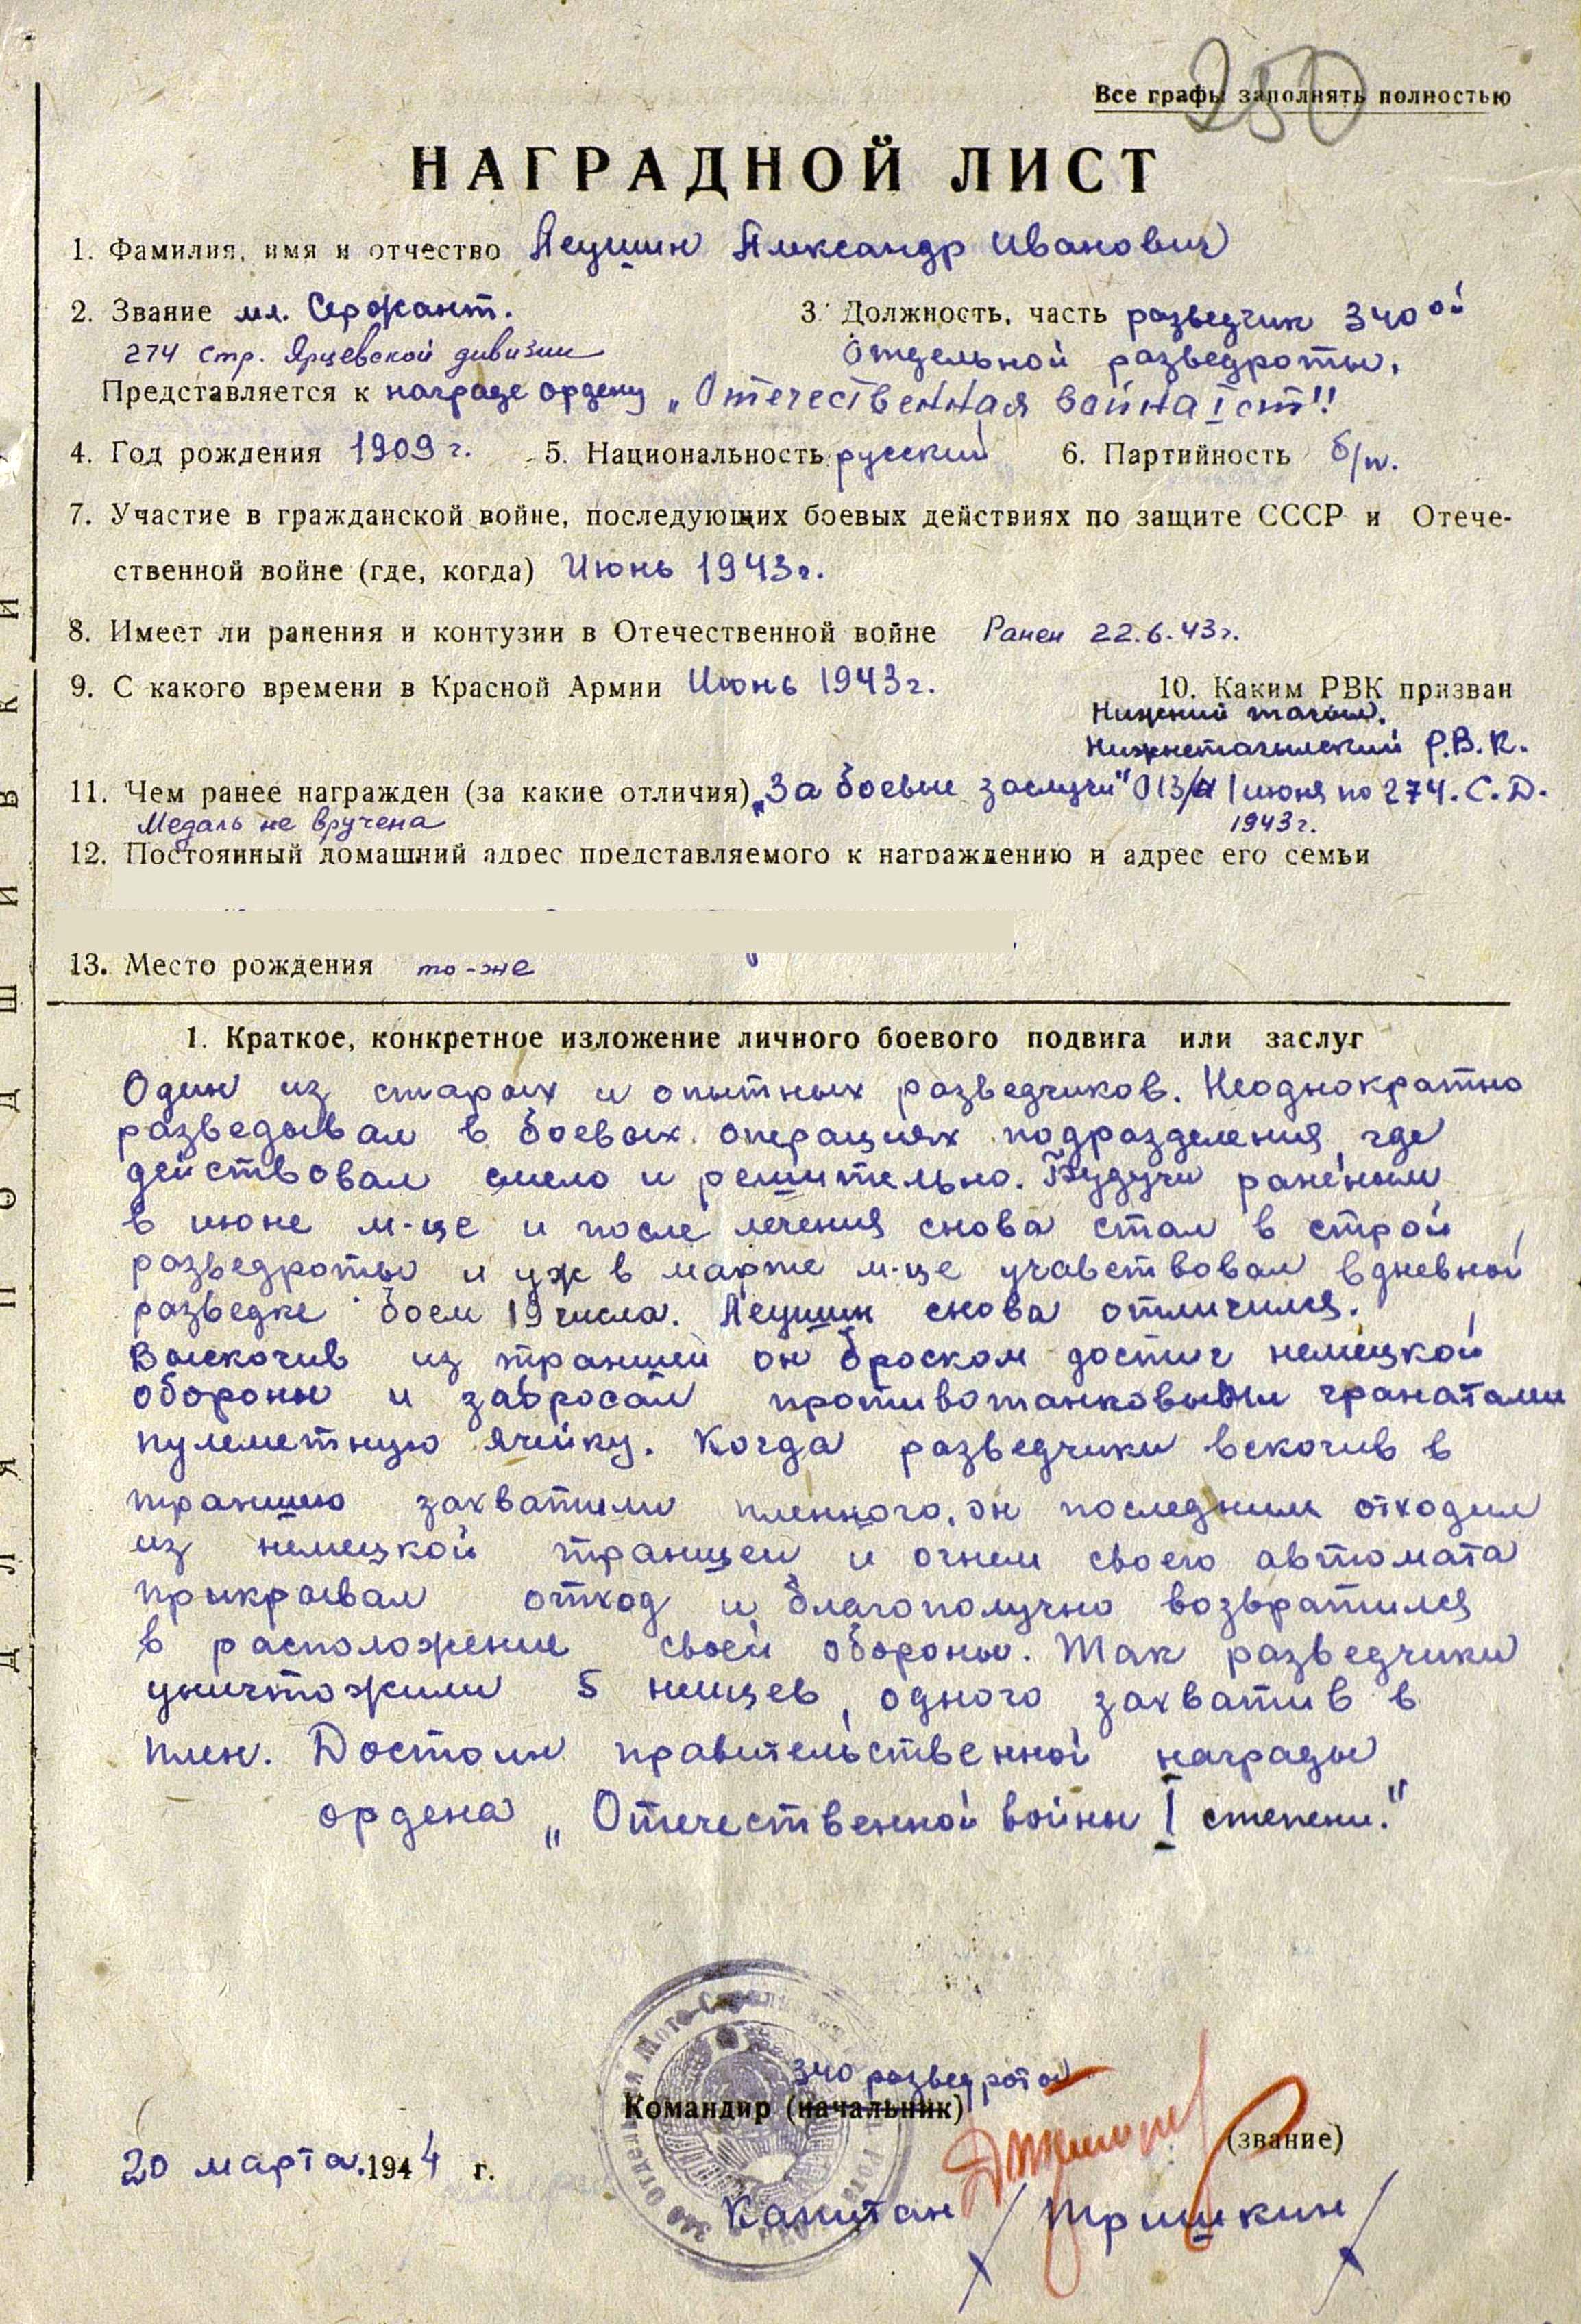 250
Все графы заполнять полностью
НАГРАДНОЙ ЛИСТ
1. Фамилия, имя и отчество Леушин Александр Иванович
2. Звание мл. Сержант.
3. Должность, часть разведчик 340ой
274 стр. Ярцевской дивизии
отдельной разведроты.
Представляется к награде ордену „Отечественная война I ст"!
4. Год рождения 1909 г. 5. Национальность русский 6. Партийность б/п.
7. Участие в гражданской войне, последующих боевых действиях по защите СССР и Отече-
ственной войне (где, когда) Июнь 1943 г.
8. Имеет ли ранения и контузии в Отечественной войне Ранен 22.6.43 г.
9. С какого времени в Красной Армии Июнь 1943 г. 10. Каким РВК призван
Нижний тагил.
Нижнетагильский Р.В.К.
11. Чем ранее награжден (за какие отличия) „За боевые заслуги" 013/н 1 июня по 274. С.Д.
Медаль не вручена 1943 г.
12. Постоянный домашний адрес представляемого к награждению и адрес его семьи
13. Место рождения то-же
1. Краткое, конкретное изложение личного боевого подвига или заслуг
Один из старых и опытных разведчиков. Неоднократно
разведывал в боевых операциях подразделения, где
действовал смело и решительно. Будучи раненым
в июне м-це и после лечения снова стал в строй
разведроты и уж в марте м-це учавствовал в дневной
разведке боем 19 числа. Леушин снова отличился.
Выскочив из траншеи он броском достиг немецкой
обороны и забросал противотанковыми гранатами
пулеметную ячейку. Когда разведчики вскочив в
траншею захватили пленного, он последним отходил
из немецкой траншеи и огнем своего автомата
прикрывал отход и благополучно возвратился
в расположение своей обороны. Так разведчики
уничтожили 5 немцев, одного захватив в
плен. Достоин правительственной награды
ордена „Отечественной войны I степени."
340 разведроты
Командир (начальник)
(звание)
20 марта 1944 г.
Капитан /Тришкин/
ДЛЯ ПОДШИВКИ